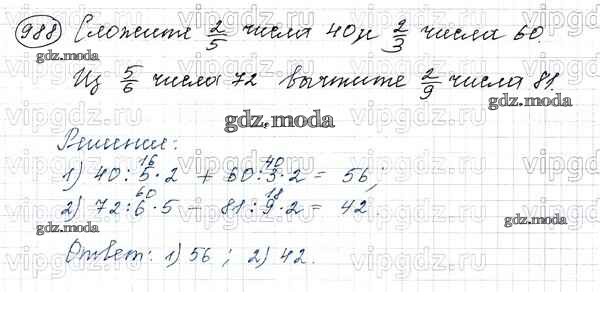 988 Сложите 2/5 числа 40 и 2/3 числа 60.
Из 5/6 числа 72 вычтите 2/9 числа 81.
gdz.moda
Решение:
16 40
1) 40:5·2 + 60:3·2 = 56;
60 18
2) 72:6·5 – 81:9·2 = 42
Ответ: 1) 56; 2) 42.
vipgdz.ru